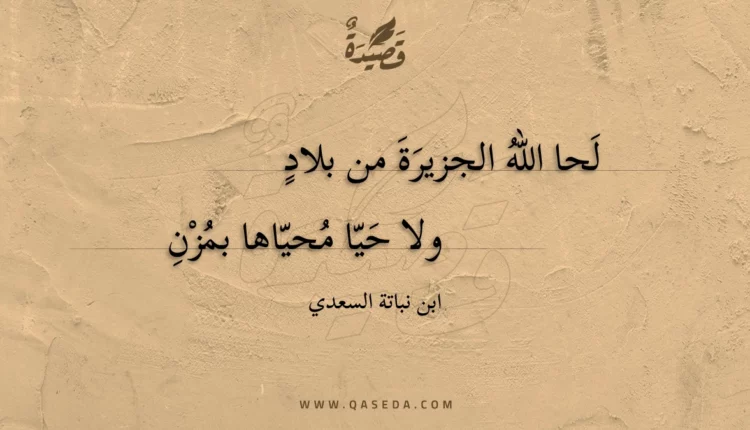 قَصِيْدَةٌ
لَحا اللهُ الجزيرَةَ من بلادٍ
ولا حَيّا مُحيّاها بمُزْنِ
ابن نباتة السعدي
WWW.QASEDA.COM